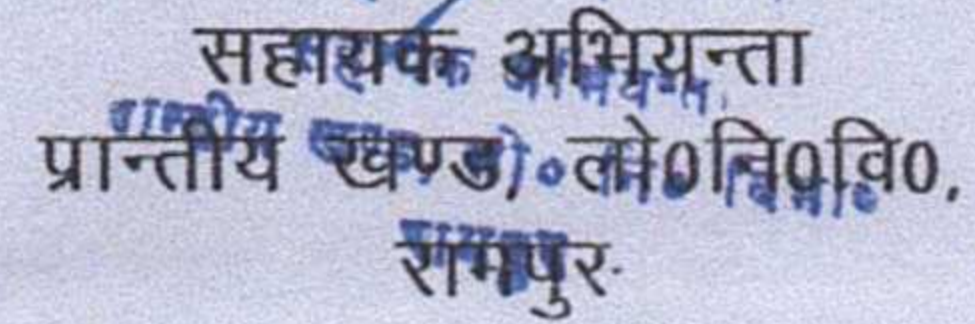 सहायक अभियन्ता
प्रान्तीय खण्ड, लो0नि0वि0,
रामपुर